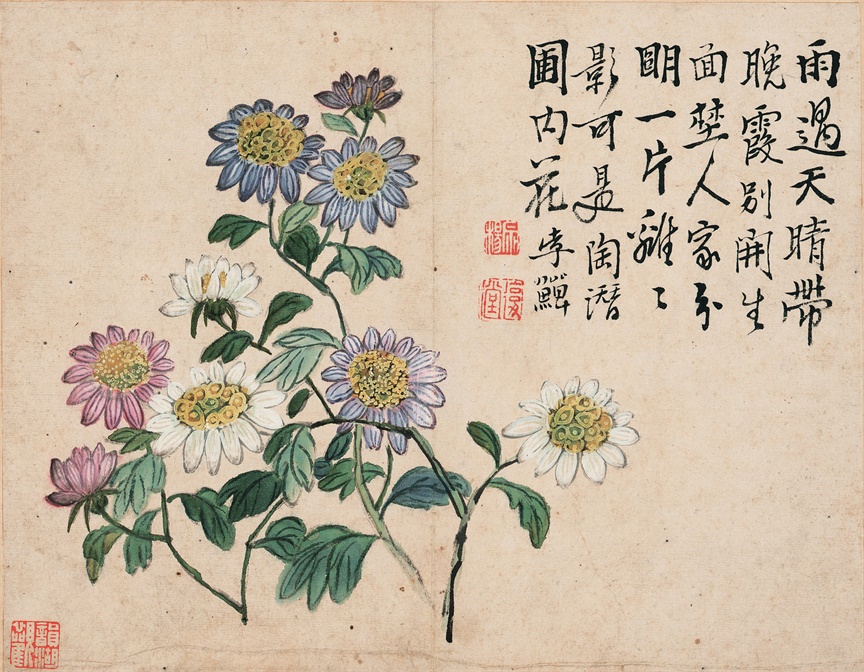 雨過天晴帶
晚霞別開生
面埜人家分
朙一片離〻
影可是陶潛
圃內花李鱓
宗揚
復堂